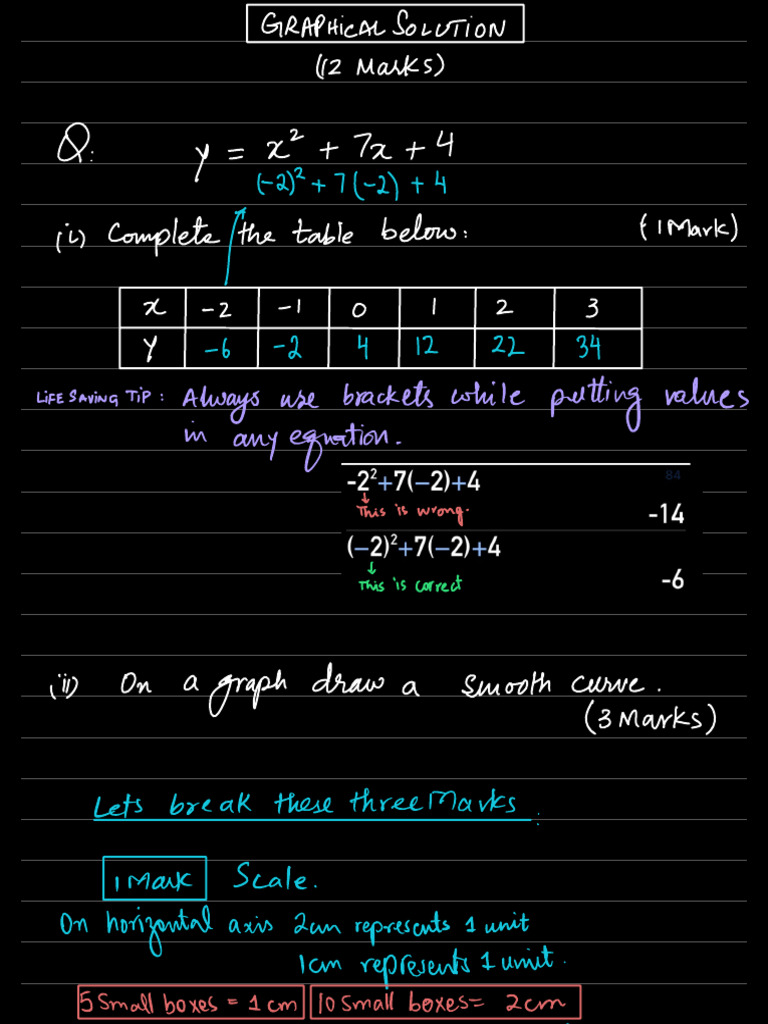 GRAPHICAL SOLUTION
(12 Marks)
Q: y = x² + 7x + 4
(-2)² + 7(-2) + 4
(i) Complete the table below: (1 Mark)
x -2 -1 0 1 2 3
y -6 -2 4 12 22 34
LIFE SAVING TIP: Always use brackets while putting values
in any equation.
-2²+7(-2)+4 84
This is wrong. -14
(-2)²+7(-2)+4
This is correct -6
(ii) On a graph draw a smooth curve.
(3 Marks)
Lets break these three Marks:
1 Mark Scale.
On horizontal axis 2cm represents 1 unit
1cm represents 1 unit.
5 Small boxes = 1 cm 10 Small boxes = 2cm